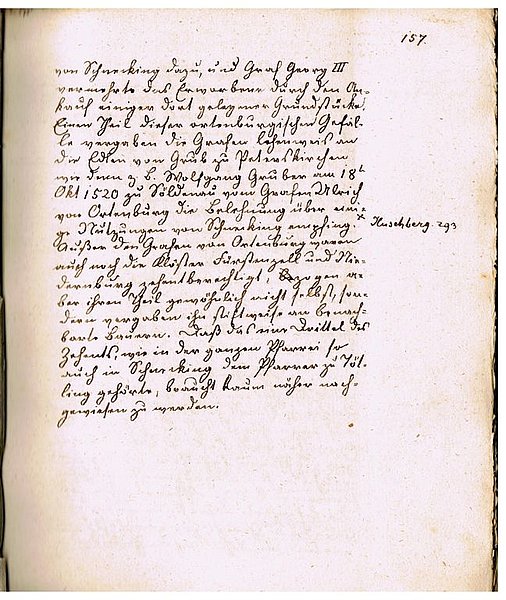 157.
von Schnecking dazu, und Graf Georg III
vermehrte das Erworbene durch den An-
kauf einiger dort gelegner Grundstücke.
Einen Theil dieser ortenburgischen Gefäl-
le vergaben die Grafen lehenweis an
die Edlen von Grub zu Peterskirchen
wie denn z. B. Wolfgang Gruber am 18t
Okt 1520 zu Söldenau vom Grafen Ulrich
von Ortenburg die Belehnung über eini-
ge Nutzungen von Schnecking empfing.x
x Huschberg. 293
Außer den Grafen von Ortenburg waren
auch noch die Klöster Fürstenzell und Nie-
dernburg zehentberechtigt, bezogen a-
ber ihren Theil gewöhnlich nicht selbst, son-
dern vergaben ihn stiftweise an benach-
barte Bauern. Daß das eine Drittel des
Zehents, wie in der ganzen Pfarrei so
auch in Schnecking dem Pfarrer zu Töt-
ling gehörte, braucht kaum näher nach-
gewiesen zu werden.